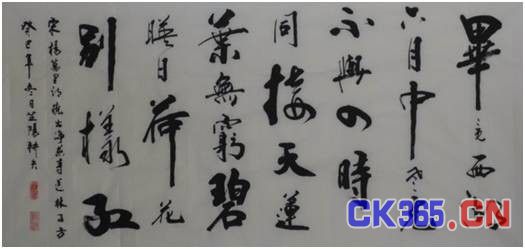 畢竟西湖
六月中風光
不與四時
同接天蓮
葉無窮碧
暎日荷花
別樣紅
宋楊萬里詩曉出淨慈寺送林子方
癸巳年冬日
CK365.CN